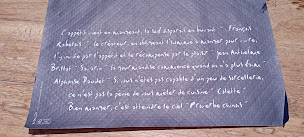 "L'appétit vient en mangeant, la soif disparaît en buvant" François
Rabelais "le créateur, en obligeant l'homme à manger pour vivre,
l'y invite par l'appétit et l'en récompense par le plaisir" Jean Anthelme
Brillat-Savarin "la gourmandise commence quand on n'a plus faim"
Alphonse Daudet "Si vous n'êtes pas capable d'un peu de sorcellerie,
ce n'est pas la peine de vous mêler de cuisine" Colette
"Bien manger, c'est atteindre le ciel" Proverbe chinois